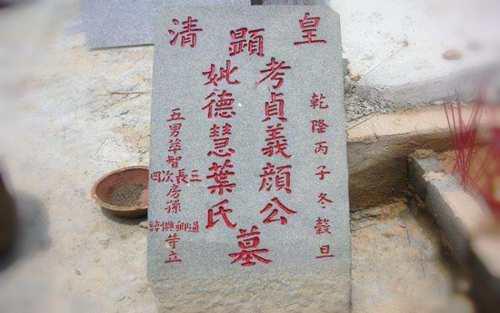 皇顯清
乾隆丙子冬穀旦
考貞義顏公
妣德慧葉氏
墓
五男
智
四次長三
房孫
等立